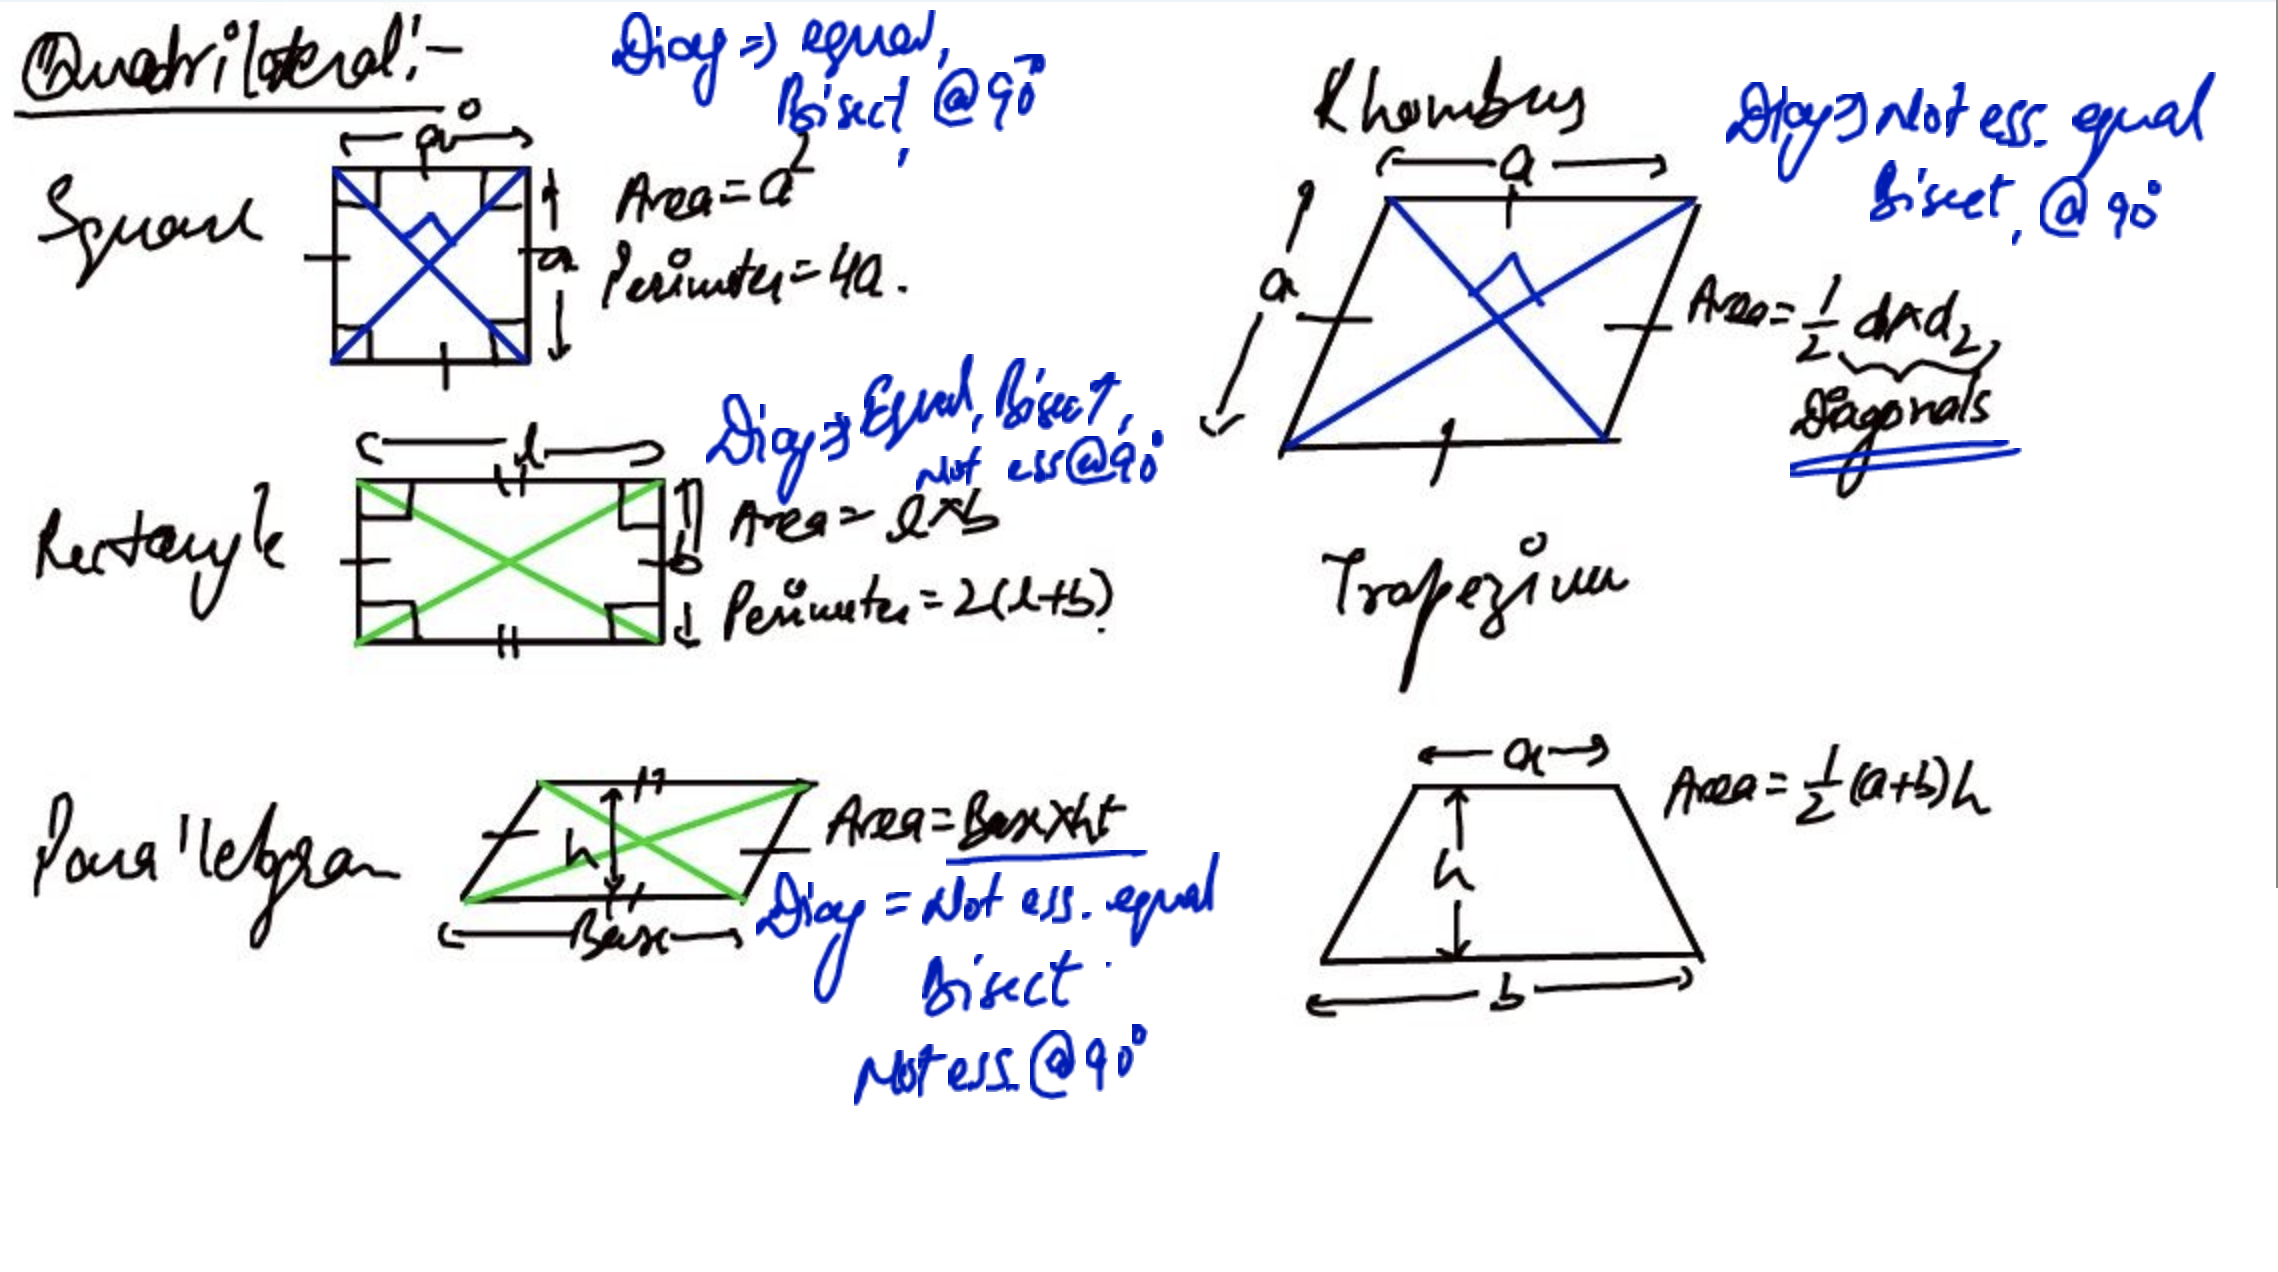 Quadrilateral:-
Diag => equal,
Bisect, @ 90°
Square
a
a
Area = a²
Perimeter = 4a.
Rectangle
l
b
Diag => Equal, Bisect,
Not ess @ 90°
Area = l×b
Perimeter = 2(l+b).
Para'llelogram
h
Base
Area = Base×ht
Diag = Not ess. equal
Bisect
Not ess. @ 90°
Rhombus
a
a
Diag => Not ess. equal
Bisect, @ 90°
Area = 1/2 d₁×d₂
Diagonals
Trapezium
a
h
b
Area = 1/2 (a+b)h